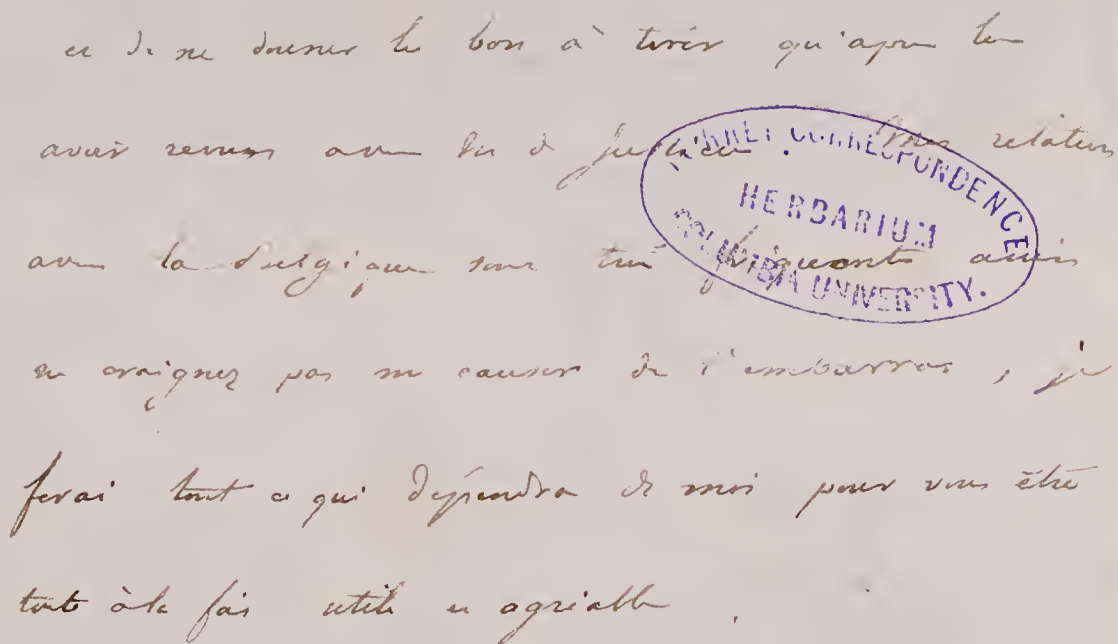 et de ne donner le bon à tirer qu'après les
avoir revues avec de Jussieu. Mes relations
avec la Belgique sont très fréquentes ainsi
ne craignez pas me causer de l'embarras, je
ferai tout ce qui dépendra de moi pour vous être
tout à la fois utile et agréable.
CORRESPONDENCE
HERBARIUM
COLUMBIA UNIVERSITY.